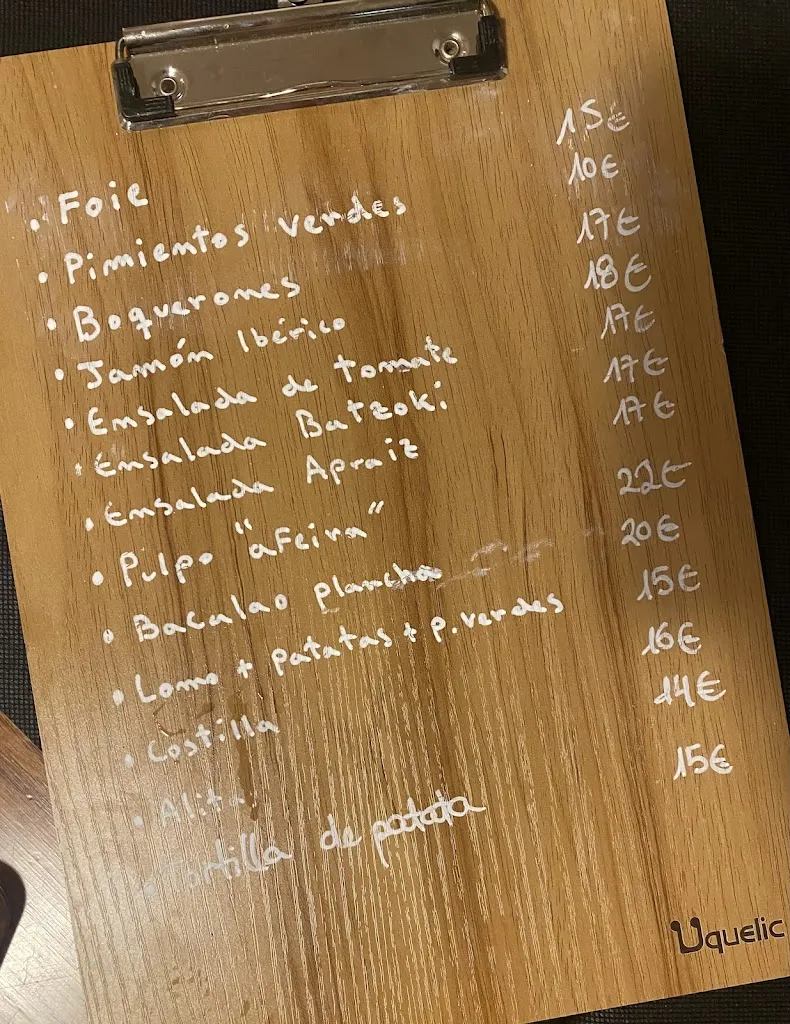 • Foie 15€
• Pimientos verdes 10€
• Boquerones 17€
• Jamón Ibérico 18€
• Ensalada de tomate 17€
• Ensalada Batzoki 17€
• Ensalada Apraiz 17€
• Pulpo "aFeira" 22€
• Bacalao plancha 20€
• Lomo + patatas + P. verdes 15€
• Costilla 16€
• Alita 14€
• Tortilla de patata 15€
Uquelic